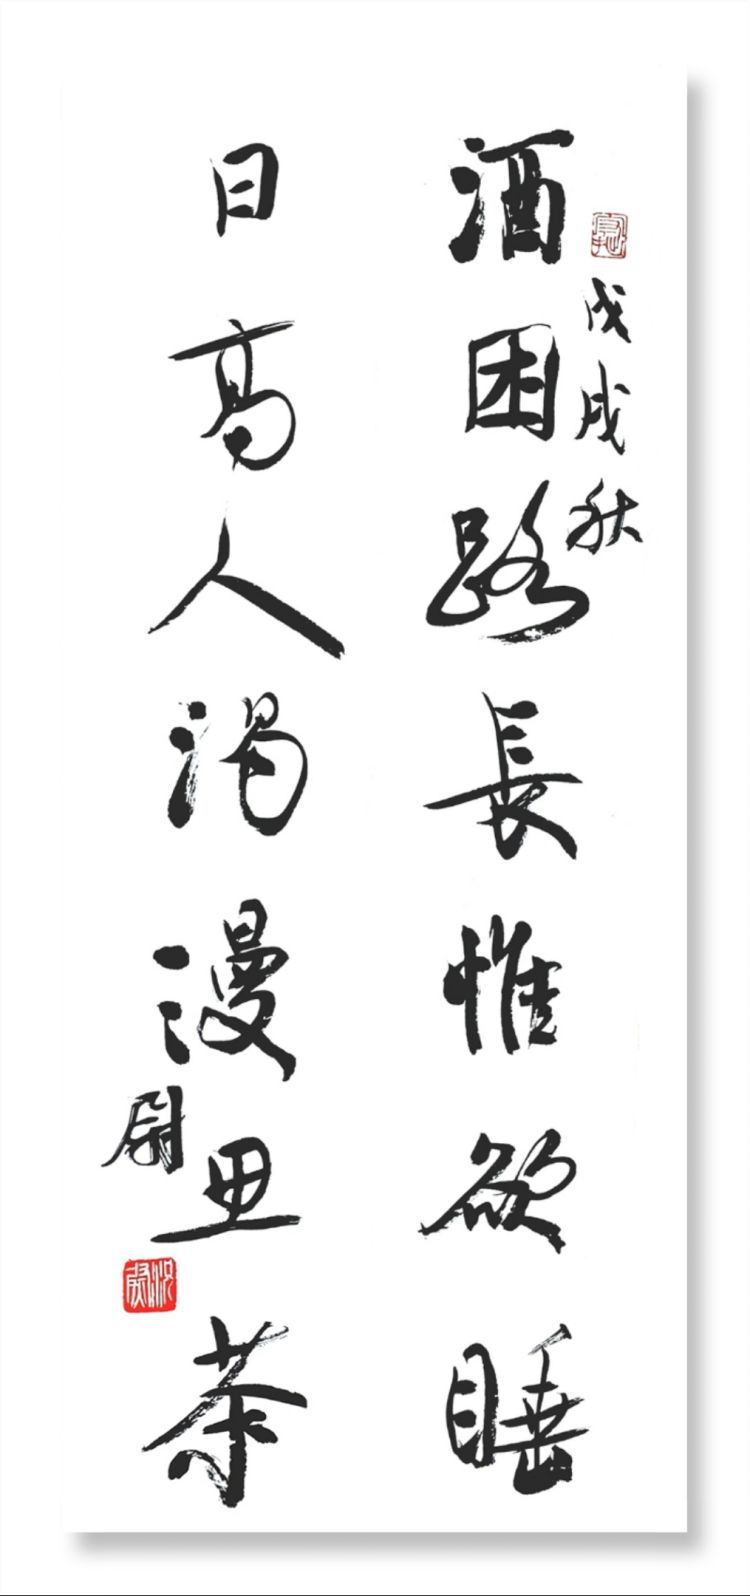 戊戌秋
酒困路長惟欲睡
日高人渴漫思茶